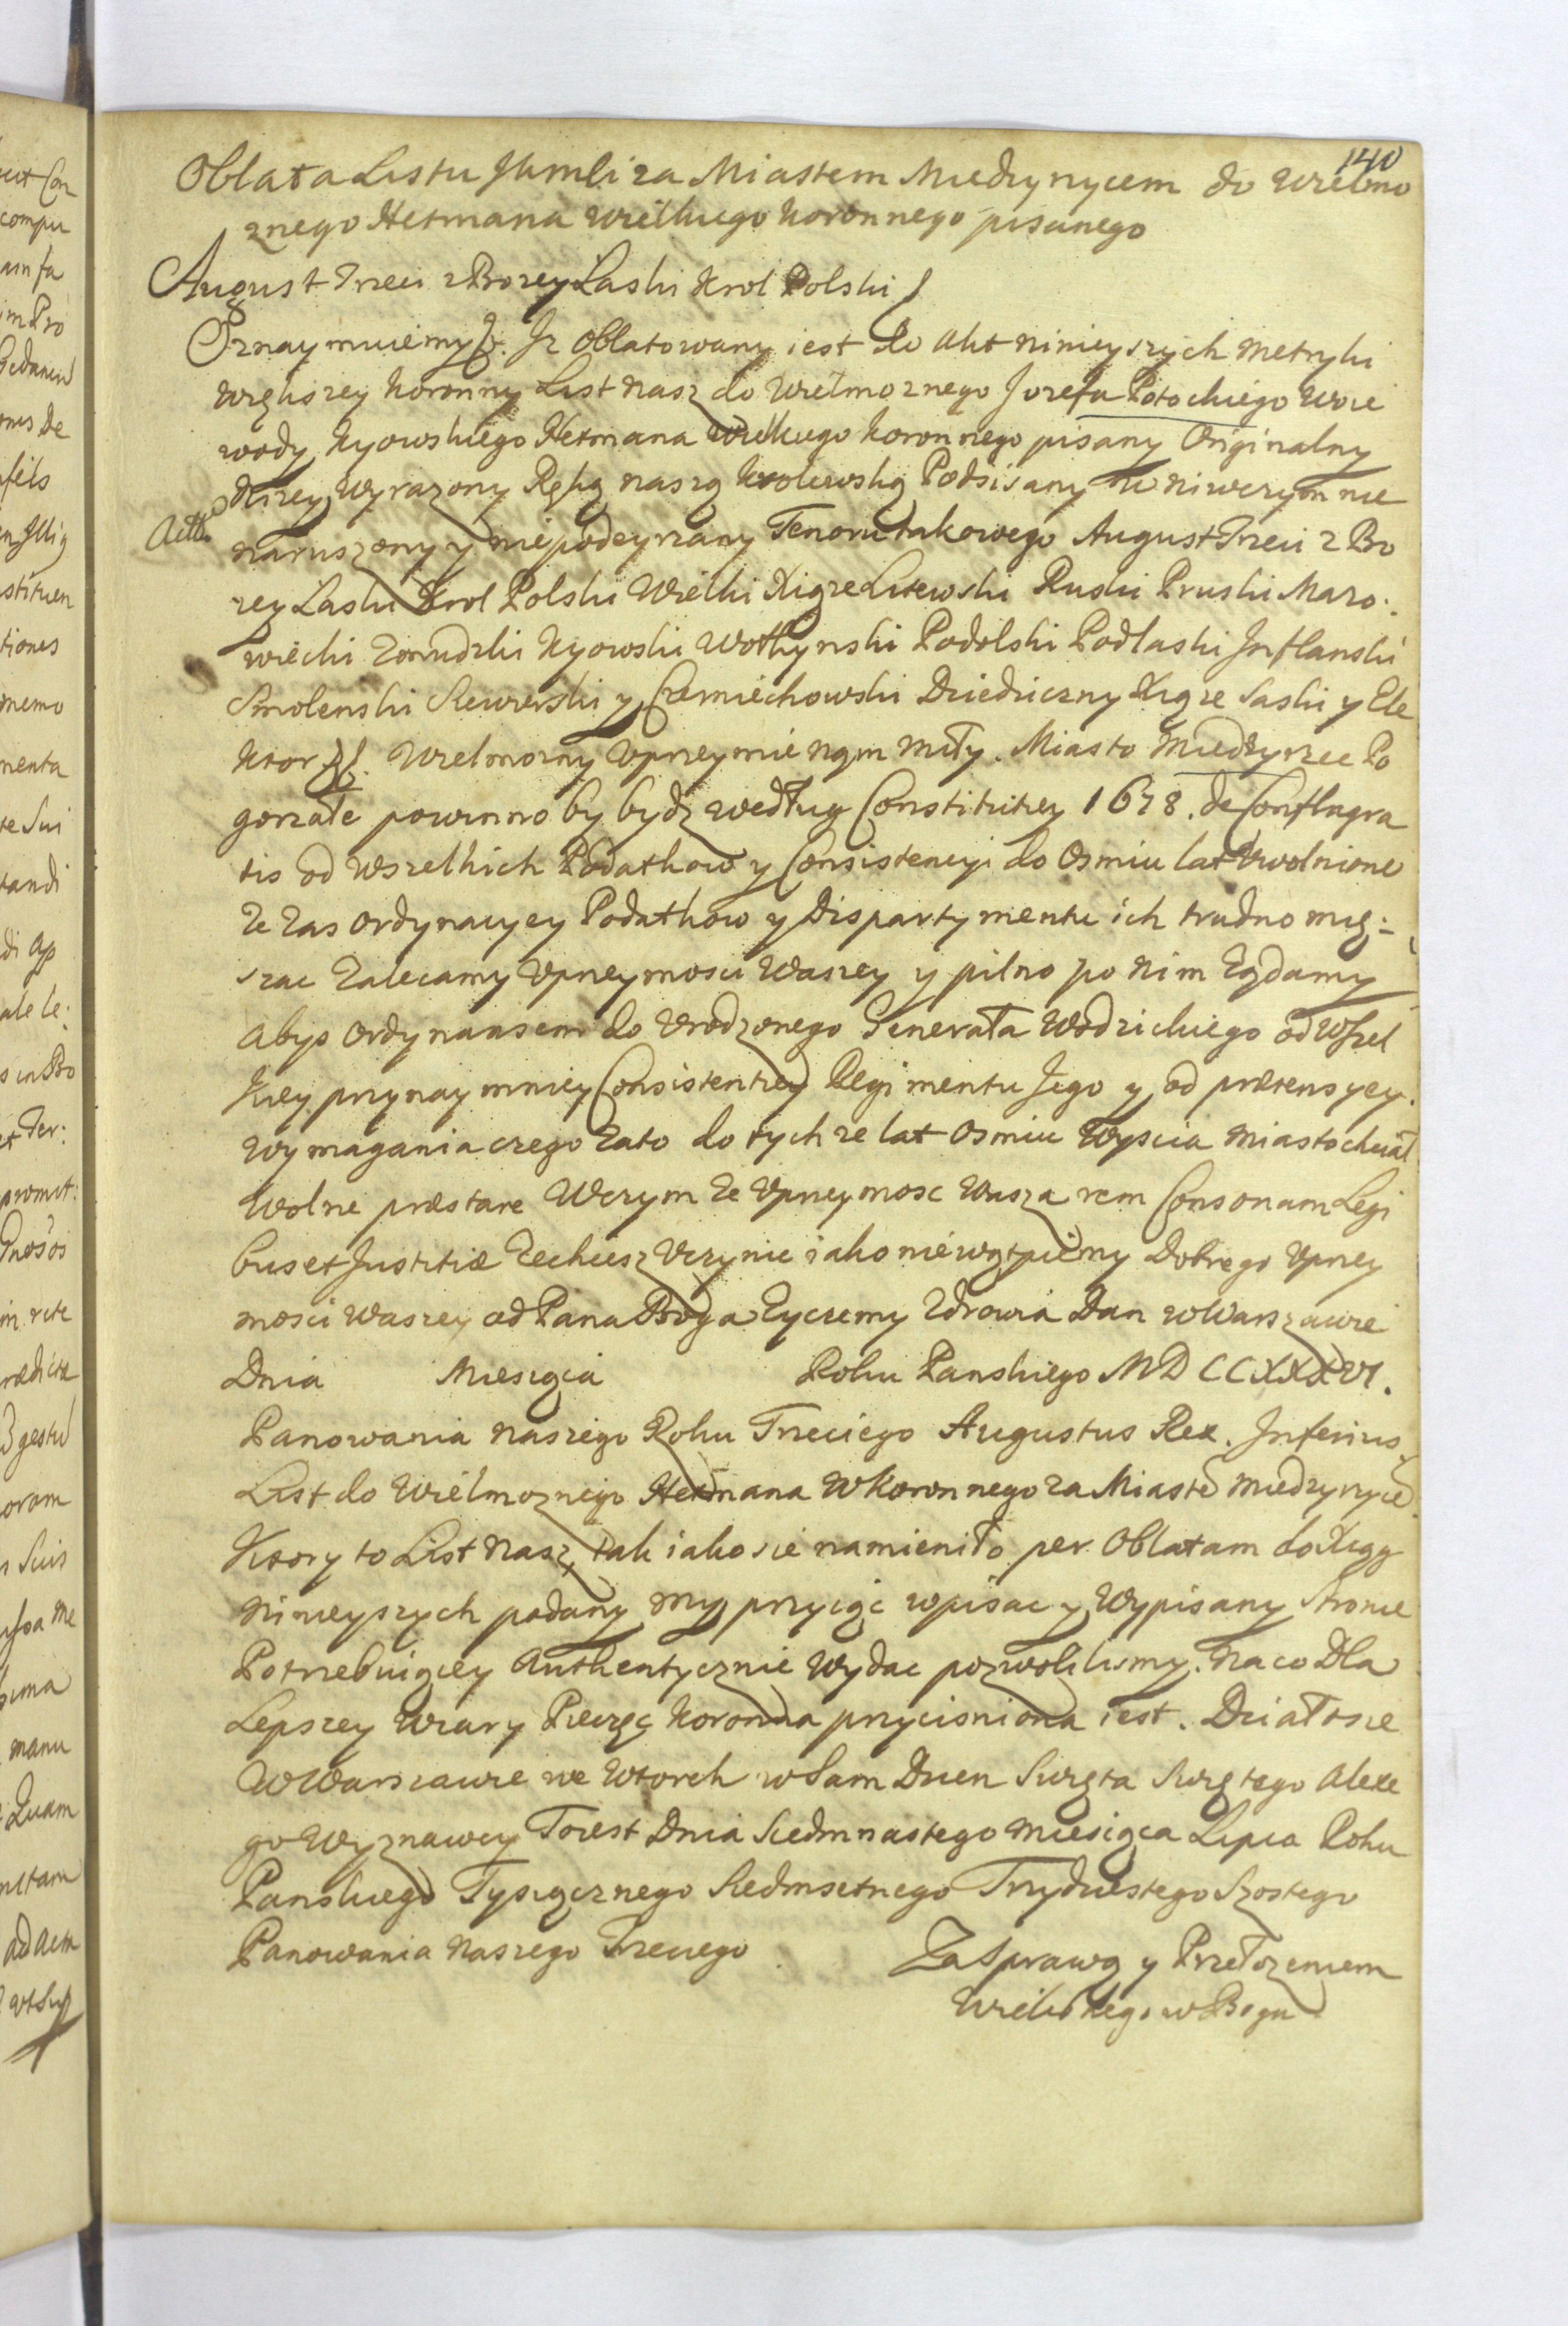 140
Oblata Listu JKmści za Miastem Miedzyrzycem do Wielmo
znego Hetmana Wielkiego Koronnego pisanego
August Trzeci z Bozey Łaski Krol Polski
Oznaymuiemy Iz Oblatowany iest do Akt ninieyszych Metryki
Większey Koronny List Nasz do Wielmoznego Jozefa Potockiego Woie
wody Kyowskiego Hetmana Wielkiego Koronnego pisany Originalny
Nizey Wyrazony Ręką naszą Krolewską Podpisany w niwczym nie
naruszony y niepodeyrzany Tenoru takowego August Trzeci z Bo
zey Łaski Krol Polski Wielki Xiąze Litewski Ruski Pruski Mazo:
wiecki Zmudzki Kyowski Wołhynski Podolski Podlaski Inflanski
Smolenski Siewierski y Czerniechowski Dziedziczny Xiąze Saski y Ele
ktor Wielmozny Vprzeymie Nąm Miły. Miasto Miedzyrzec Po
gorzałe powinno by bydz według Constitucyi 1678. de Conflagra
tis od wszelkich Podatkow y Consistencyi do Osmiu lat Vwolnione
Ze zas Ordynacyey Podatkow y Dispartymentu ich trudno mię:
szac Zalecamy Vprzeymosci Waszey y pilno po nim Ządamy
abys Ordynansem do Vrodzonego Generała Wodzickiego od Wszel
kiey przynaymniey Consistentiey Regimentu Jego y od prætensyey
Wymagania czego Zato do tychze lat Osmiu Wyscia Miasto chciał
Wolne præstare Wczym Ze Vprzeymosc Wasza rem Consonam Legi
bus et Justitiæ Zechcesz Vczynic iako niewątpiemy Dobrego Vprzey
mosci Waszey od Pana Boga Zyczemy Zdrowia Dan w Warszawie
Dnia Miesiąca Roku Panskiego MDCCXXXVI.
Panowania Naszego Roku Trzeciego Augustus Rex. Inferius
List do Wielmoznego Hetmana W Koronnego za Miastē Miedzyrzycē
Ktory to List Nasz, tak iako sie namieniło per Oblatam do Xiąg
Ninieyszych podany my przyiąc wpisac y Wypisany Stronie
Potrzebuiącey Authentycznie Wydac pozwolilismy. Na co Dla
Lepszey Wiary Pieczęc Koronna przycisniona iest. Działo sie
W Warszawie we Wtorek w Sam Dzien Swięta Swiętego Alexe
go Wyznawcy To iest Dnia Siedmnastego Miesiąca Lipca Roku
Panskiego Tysiącznego Siedmsetnego Trzydziestego Szostego
Panowania Naszego Trzeciego
Za Sprawą y Przełozeniem
Wielebnego w Bogu